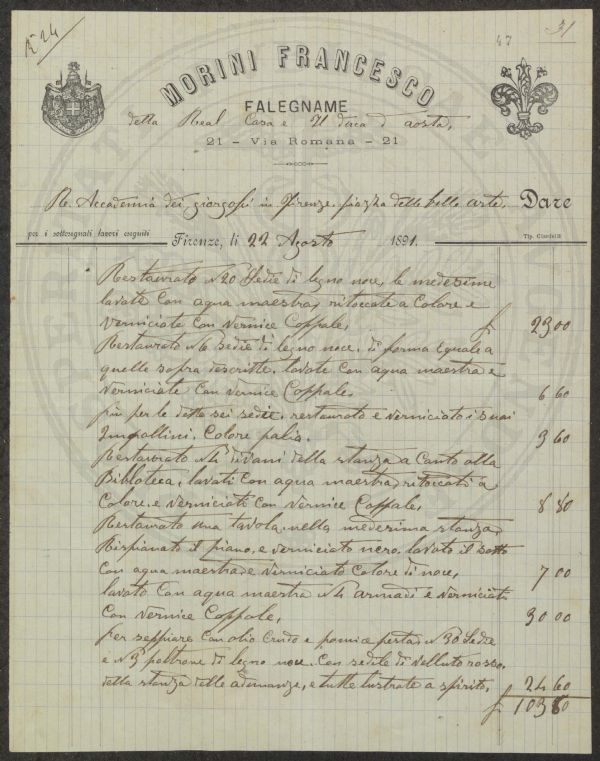 N 24
47
31
MORINI FRANCESCO
FALEGNAME
della Real Casa e
duca d aosta,
21 - Via Romana - 21
R. Accademia dei giorgofi in Firenze piazza delle belle arte, Dare
per i sottosegnati lavori eseguiti
Firenze, li 22 Agosto 1891.
Tip. Ciardelli
Restaurato N 20 Sedie di legno noce, le medesime
lavate con aqua maestra, ritoccate a Colore e
verniciate con vernice Coppale, £ 23 00
Restaurato N 6 sedie di legno noce. di forma Equale a
quelle sopra descritte. lavate con aqua maestra e
verniciate con vernice Coppale. 6 60
più per le dette sei sedie. restaurato e verniciato i suoi
Colore palio. 3 60
Restaurato N 4 divani della stanza a Canto alla
Biblioteca, lavati con aqua maestra, ritoccati a
Colore. e verniciati con vernice Coppale, 8 80
Restaurato una tavola. nella medesima stanza,
Rispianato il piano, e verniciato nero. lavato il sotto
con aqua maestra, e verniciato Colore di noce, 7 00
lavato con aqua maestra N 4 armadi e verniciati
con vernice Coppale, 30 00
per seppiare con olio Crudo e pomice pesta, N 30 Sedie
e N 3 poltrone di legno noce. con sedile di velluto rosso,
della stanza delle adunanze, e tutte lustrate a spirito, 24 60
£ 103 60